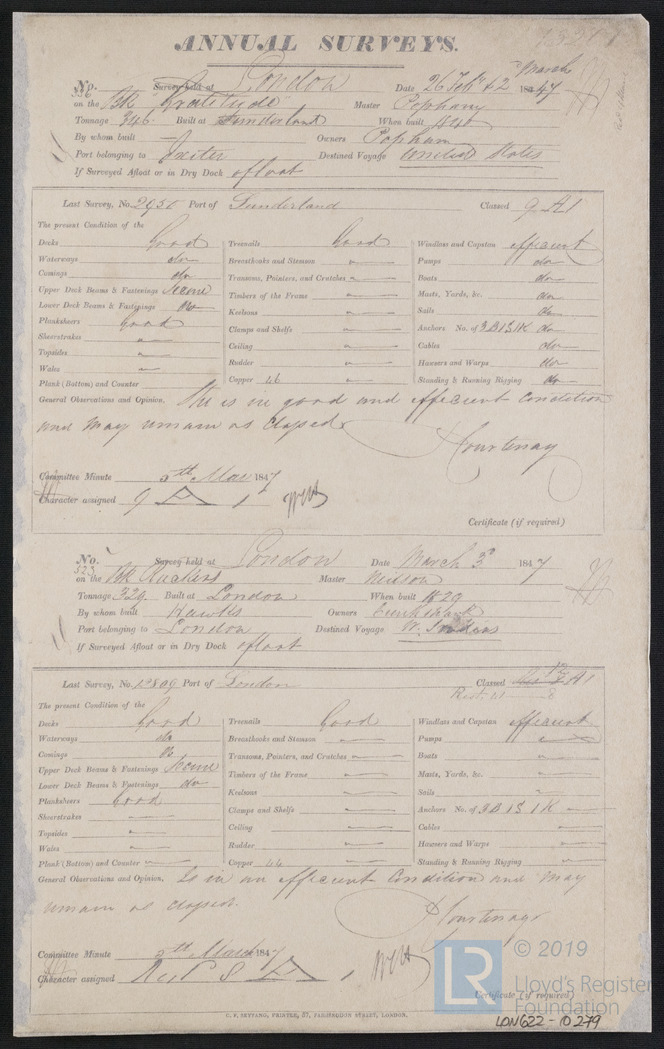 ANNUAL SURVEYS.
No. 536 Survey held at London Date 26 Feb & 2 March 1847
on the Bk Gratitude Master Popham
Tonnage 346 Built at Sunderland When built 1840
By whom built Owners Popham
Port belonging to Exeter Destined Voyage United States
If Surveyed Afloat or in Dry Dock afloat
Last Survey, No. 2950 Port of Sunderland Classed 9 A1
The present Condition of the
Decks Good Treenails Good Windlass and Capstan efficient
Waterways do Breasthooks and Stemson Pumps do
Comings do Transoms, Pointers, and Crutches Boats do
Upper Deck Beams & Fastenings Secure Timbers of the Frame Masts, Yards, &c. do
Lower Deck Beams & Fastenings Do Keelsons Sails do
Planksheers good Clamps and Shelfs Anchors No. of 3B 1S 1K do
Sheerstrakes Ceiling Cables do
Topsides Rudder Hawsers and Warps do
Wales Copper 46 Standing & Running Rigging do
Plank (Bottom) and Counter
General Observations and Opinion, She is in good and efficient condition
and may remain as classed
Courtenay
Committee Minute 5th Mar 1847
Character assigned 9 A 1
Certificate (if required)
No. 523 Survey held at London Date March 3 1847
on the Bk Ruckers Master Neilson
Tonnage 329 Built at London When built 1829
By whom built Hawks Owners
Port belonging to London Destined Voyage W. Indies
If Surveyed Afloat or in Dry Dock afloat
Last Survey, No. Port of London Classed A1
Rest. 8
The present Condition of the
Decks Good Treenails Good Windlass and Capstan efficient
Waterways do Breasthooks and Stemson Pumps
Comings Do Transoms, Pointers, and Crutches Boats
Upper Deck Beams & Fastenings Secure Timbers of the Frame Masts, Yards, &c.
Lower Deck Beams & Fastenings do Keelsons Sails
Planksheers Good Clamps and Shelfs Anchors No. of 3B 1S 1K
Sheerstrakes Ceiling Cables
Topsides Rudder Hawsers and Warps
Wales Copper 44 Standing & Running Rigging
Plank (Bottom) and Counter
General Observations and Opinion, Is in an efficient Condition and may
remain as classed.
Courtenay
Committee Minute 5th March 1847
Character assigned A 1
Certificate (if required)
C. F. SEYFANG, PRINTER, 57, FARRINGDON STREET, LONDON.
LR © 2019
Lloyd's Register
Foundation
LON622-10279